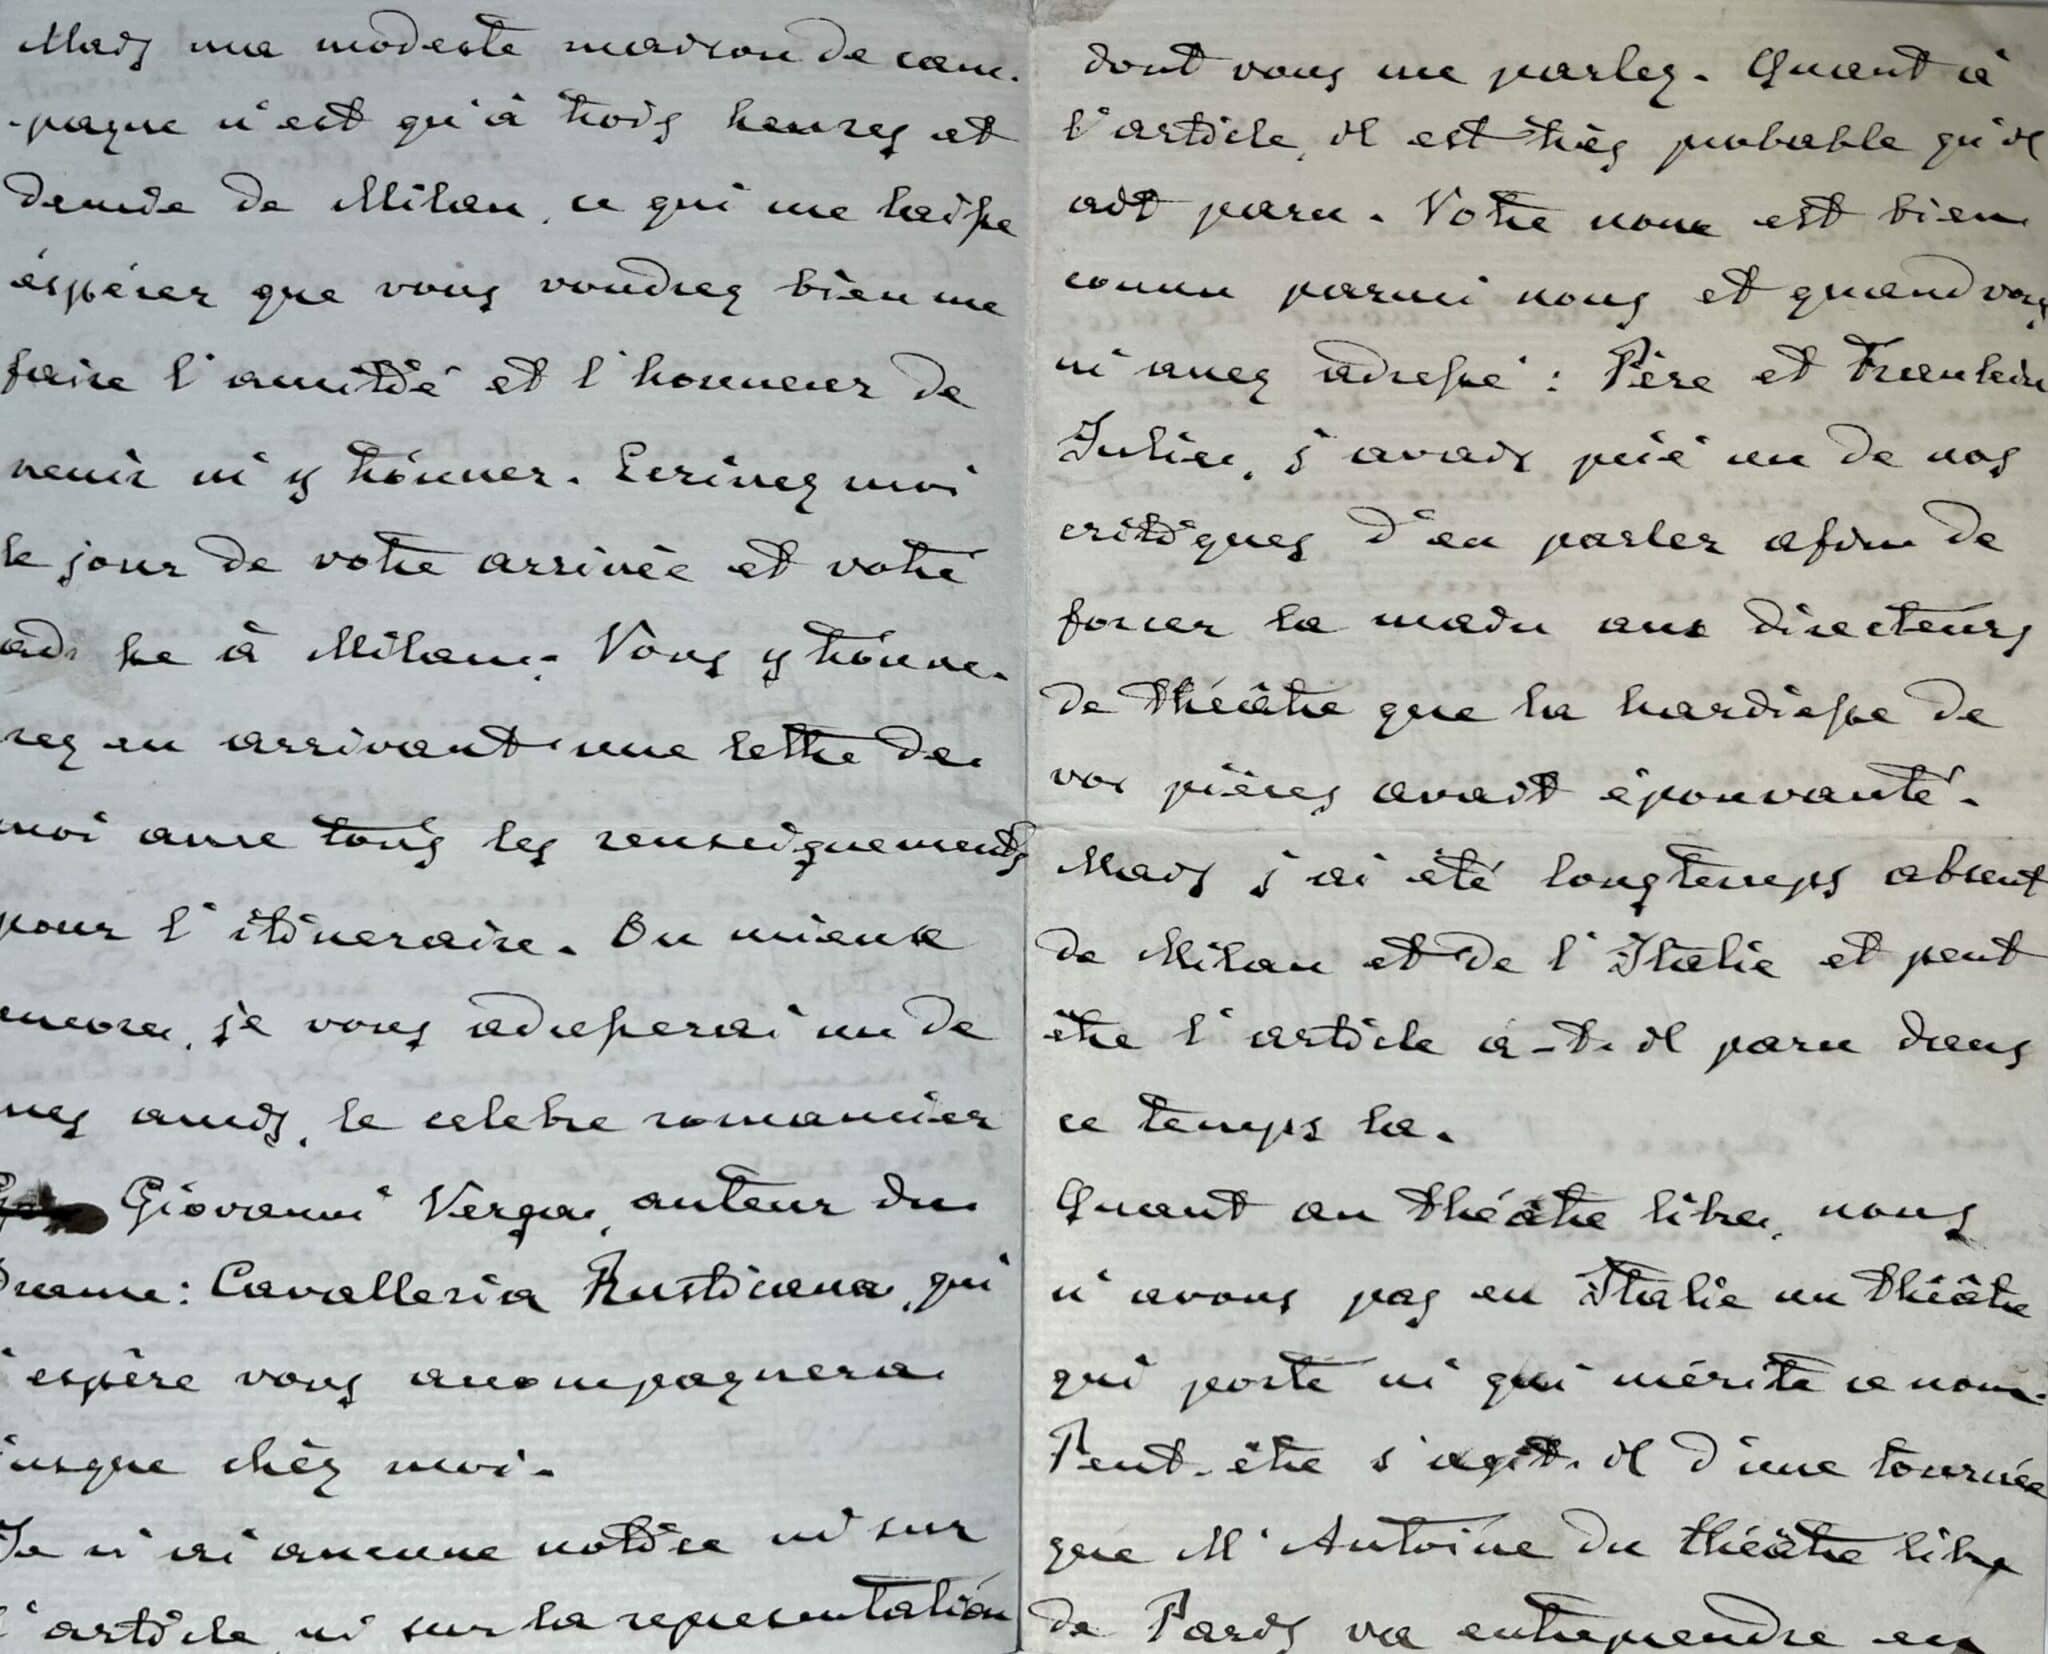 Mais ma modeste maison de cam-
-pagne n'est qu'à trois heures et
demie de Milan, ce qui me laisse
éspérer que vous voudrez bien me
faire l'amitié et l'honneur de
venir m'y trouver. Ecrivez moi
le jour de votre arrivée et votre
à Milan. Vous y trouve-
rez en arrivant une lettre de
moi avec tous les renseignements
pour l'itineraire. Ou mieux
encore, je vous adresserai un de
mes amis, le celebre romancier
Giovanni Verga, auteur du
drame: Cavalleria Rusticana, qui
j'espère vous accompagnera
jusque chèz moi.
Je n'ai aucune notice ni sur
l'article, ni sur la representation
dont vous me parlez. Quant à
l'article, il est très probable qu'il
ait paru. Votre nom est bien
connu parmi nous et quand vous
m'avez adressé: Père et Fraeulein
Julie, j'avais prié un de nos
critiques d'en parler afin de
forcer la main aux directeurs
de théâtre que la hardiesse de
vos pièces avait épouvanté.
Mais j'ai été longtemps absent
de Milan et de l'Italie et peut
être l'article a-t-il paru dans
ce temps la.
Quant au théâtre libre, nous
n'avons pas en Italie un théâtre
qui porte ni qui mérite ce nom.
Peut-être s'agit-il d'une tournée
que M. Antoine du théâtre libre
de Paris va entreprendre en